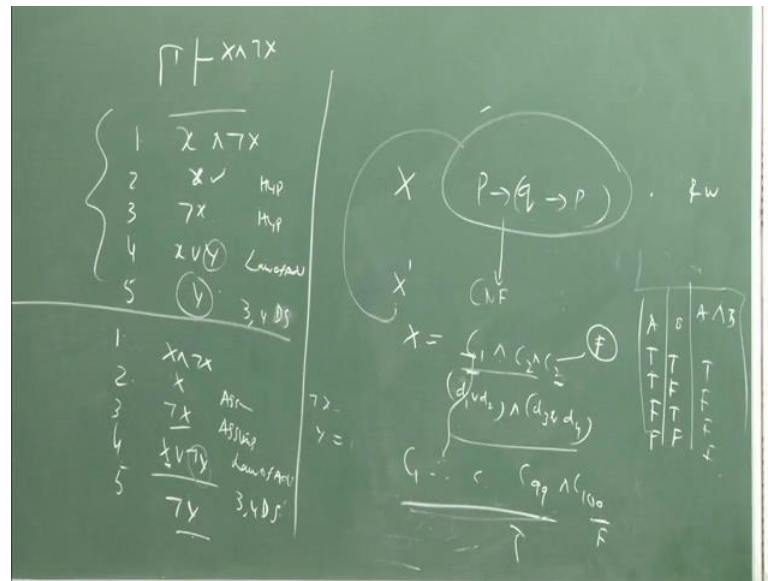 Γ ⊢ X∧¬X
1 X ∧ ¬X
2 X ✓ Hyp
3 ¬X Hyp
4 X∨Y Law of Add
5 Y 3,4 DS
1. X∧¬X
2. X Ass
3 ¬X Assump
4 X∨¬Y Law of Add
5 ¬Y 3,4 DS
X P→(q→P)
X' CNF
X = C1 ∧ C2 ∧ C3 — F
(d1∨d2) ∧ (d3∨d4)
C1 ... C99 ∧ C100
T F
A B A∧B
T T T
T F F
F T F
F F F